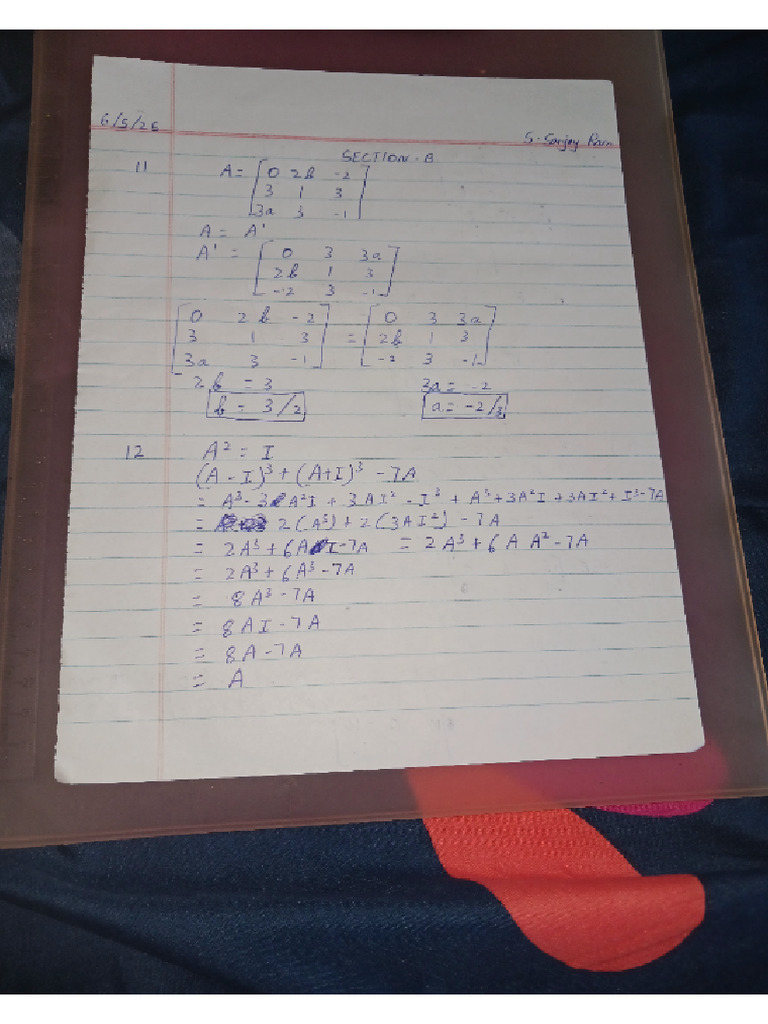 6/5/25
S. Sanjay Ram
SECTION-B
11 A = [0 2b -2
3 1 3
3a 3 -1]
A = A'
A' = [0 3 3a
2b 1 3
-2 3 -1]
[0 2b -2 = [0 3 3a
3 1 3 2b 1 3
3a 3 -1] -2 3 -1]
2b = 3 3a = -2
b = 3/2 a = -2/3
12 A² = I
(A - I)³ + (A+I)³ - 7A
= A³ - 3A²I + 3AI² - I³ + A³ + 3A²I + 3AI² + I³ - 7A
= 2(A³) + 2(3AI²) - 7A
= 2A³ + 6A I - 7A = 2A³ + 6A A² - 7A
= 2A³ + 6A³ - 7A
= 8A³ - 7A
= 8AI - 7A
= 8A - 7A
= A